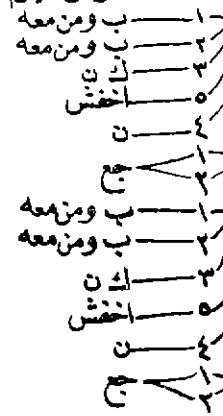 ١ — ب ومن معه
٢ — ب ومن معه
٣ — ك ن
٥ — اخفش
٤ — ن
١
٢ جع
١ — ب ومن معه
٢ — ب ومن معه
٣ — ك ن
٥ — اخفش
٤ — ن
١
٢ جع